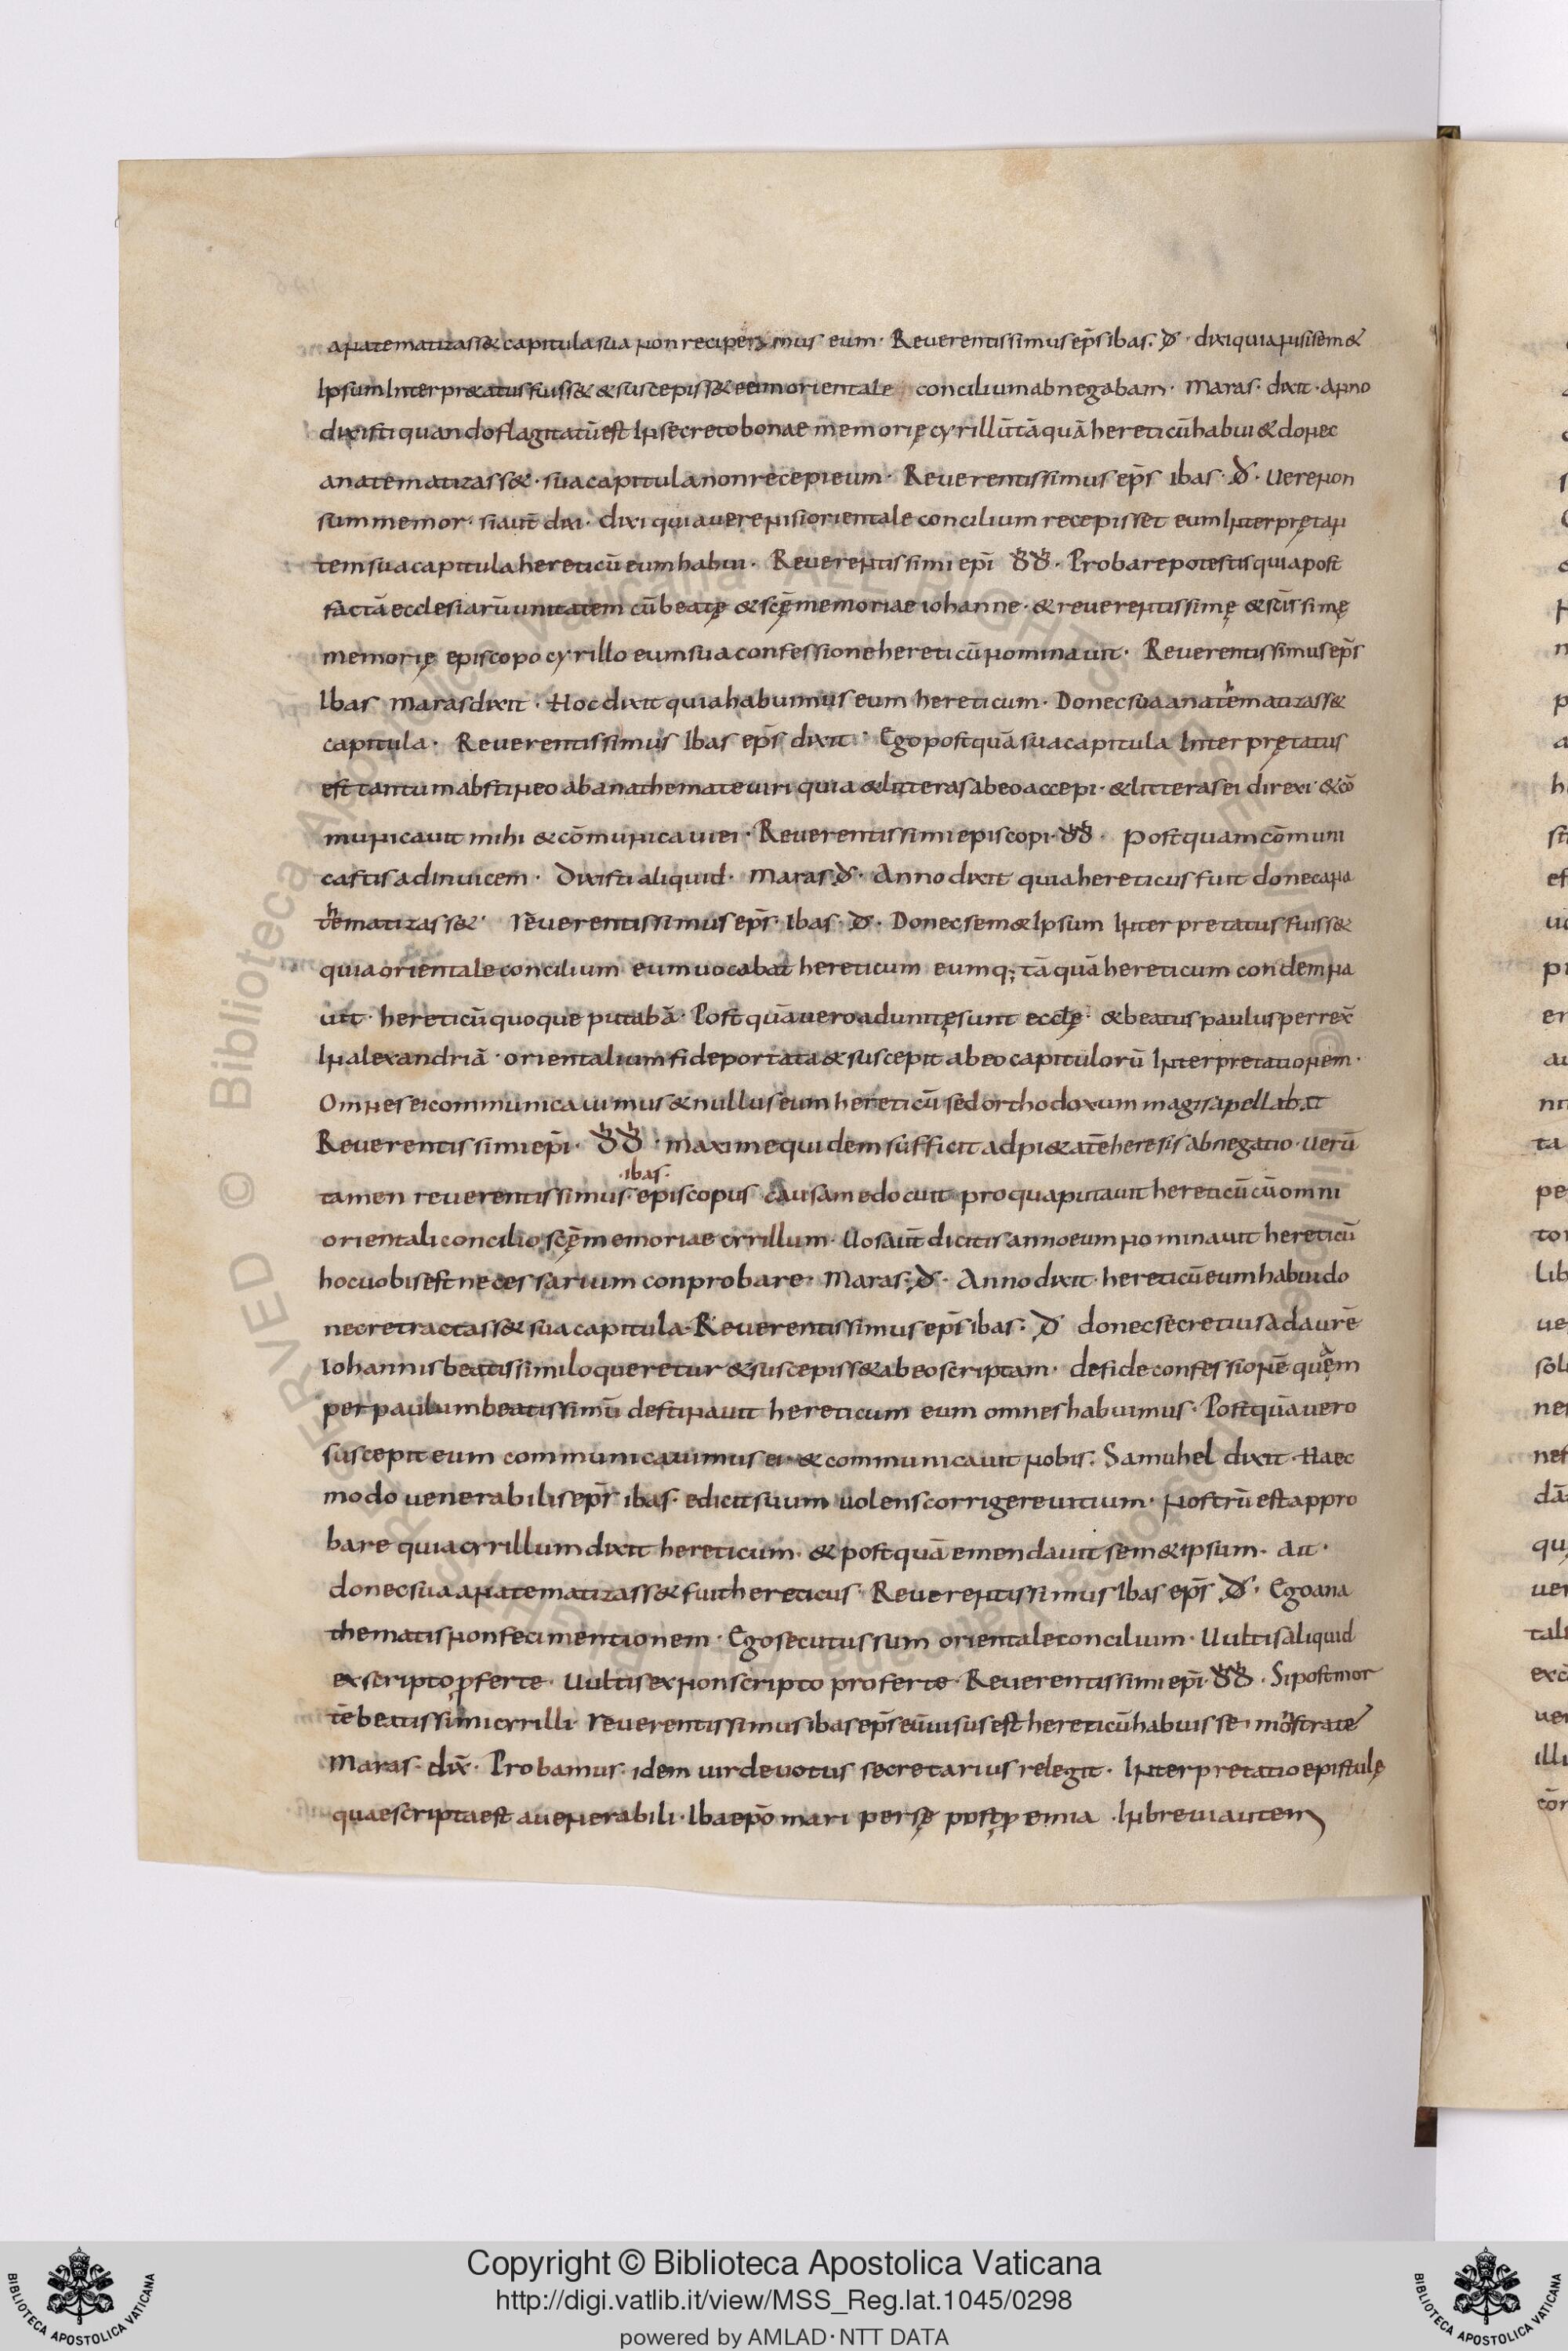 anatematizass& capitula sua non reciperemus eum · Reverentissimus ep̄s ibas : đ · dixi quia nisi sem&
Ipsum Interpr&atus fuiss& & suscepiss& eum orientale concilium abnegabam · Maras · dixit · Anno
dixisti quando flagitatū est In secreto bonae memorię cyrillū tāquā hereticū habui & donec
anatematizass& · sua capitula non recepi eum · Reuerentissimus ep̄s ibas · đ · uere non
sum memor · si aut̄ dixi · dixi quia uere nisi orientale concilium recepisset eum Interprętan
tem sua capitula hereticū eum habui · Reuerentissimi epī đđ · Probare potestis quia post
factā ecclesiarū unitatem cū beatę & scę̄ memoriae iohanne · & reuerentissimę & sc̄issimę
memorię episcopo cyrillo eum sua confessione hereticū nominauit · Reuerentissimus ep̄s
Ibas Maras dixit · Hoc dixit quia habuimus eum hereticum · Donec sua anathematizass&
capitula · Reuerentissimus Ibas ep̄s dixit · Ego postquā sua capitula Interprętatus
est tantum abstineo ab anathemate uiri quia & litteras ab eo accepi · & litteras ei direxi · & cō
municauit mihi & cōmunicaui ei · Reuerentissimi episcopi · đđ · Postquam cōmuni
castis adinuicem · Dixisti aliquid · Maras đ · Anno dixit quia hereticus fuit donec ana
thematizass& · reuerentissimus ep̄s · Ibas · đ · Donec sem& Ipsum Interpretatus fuiss&
quia orientale concilium eum uocabat hereticum eumq; tāquā hereticum condemna
uit · hereticū quoque putabā · Post quā uero adunitę sunt eccłę · & beatus paulus perrex̄
In alexandriā · orientalium fide portata & suscepit ab eo capitulorū Interpretationem ·
Omnes ei communicauimus & nullus eum hereticū sed orthodoxum magis apellabat
Reuerentissimi epī · đđ · maxime quidem sufficit ad pi&atē heresis abnegatio · uerū
tamen reuerentissimus · ibas · episcopus causam edocuit pro qua putauit hereticū cū omni
orientali concilio scę̄ memoriae cyrillum · Uos aut̄ dicitis anno eum nominauit hereticū
hoc uobis est necessarium conprobare · Maras · đ · Anno dixit · hereticū eum habui do
nec retractass& sua capitula · Reuerentissimus ep̄s ibas : đ donec secretius ad aurē
Iohannis beatissimi loqueretur & suscepiss& ab eo scriptam · de fide confessionē quę̄m
per paulum beatissimū destinauit hereticum eum omnes habuimus · Postquā uero
suscepit eum communicauimus ei · & communicauit nobis : Samuhel dixit · Haec
modo uenerabilis ep̄s ibas · edicit suum uolens corrigere uitium · nostrū est appro
bare quia cyrillum dixit hereticum · & postquā emendauit sem& ipsum · Ait ·
donec sua anatematizass& fuit hereticus · Reuerentissimus Ibas ep̄s đ · Ego ana
thematis non feci mentionem · Ego secutus sum orientale concilium · Uultis aliquid
ex scripto ꝓferte · Uultis ex non scripto proferte · Reuerentissimi epī đđ · Si post mor
tē beatissimi cyrilli reuerentissimus ibas ep̄s eū uisus est hereticū habuisse · mōstrate
Maras · dix̄ · Probamus · idem uir deuotus secretarius relegit · Interpretatio epistulę
quae scripta est a uenerabili · Iba epō mari persę post ꝓemia · In breui autem
Copyright © Biblioteca Apostolica Vaticana
http://digi.vatlib.it/view/MSS_Reg.lat.1045/0298
powered by AMLAD · NTT DATA